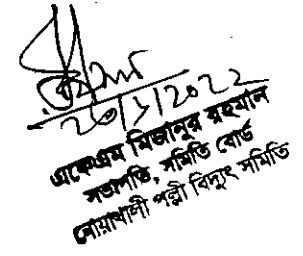 ২৬/১/২০২২
একেএম মিজানুর রহমান
সভাপতি, সমিতি বোর্ড
নোয়াখালী পল্লী বিদ্যুৎ সমিতি